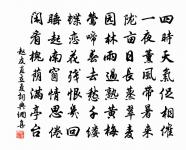 四時天氣促相催
一夜薰風帶暑來
隴畝日長蒸翠麥
園林雨過熟黃梅
鶯啼春去愁千縷
蝶戀花殘恨幾回
睡起南窗情思倦
閒看槐蔭滿亭台
趙友直立夏詞典網書